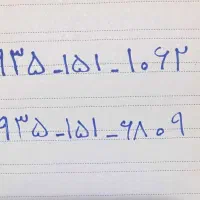 ۹۳۵-۱۵۱-۱۰۶۲
۹۳۵-۱۵۱-۶۸۰۹